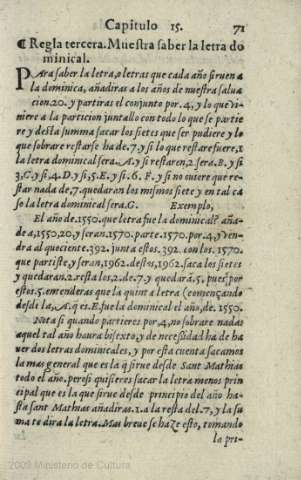 Capitulo 15. 71
¶ Regla tercera. Muestra saber la letra do
minical.
PAra saber la letra, o letras que cada año siruen a
la dominica, añadiras a los años de nuestra salua
cion. 20. y partiras el conjunto por. 4, y lo que vi-
niere a la particion juntallo con todo lo que se partie
re y desta summa sacar los sietes que ser pudiere y lo
que sobrare restarse ha de. 7. y si lo que restare fuere, 1
la letra dominical sera. A. y si restaren, 2 sera. B. y si
3, C. y si. 4. D. y si, 5. E. y si. 6. F. y si no ouiere que re-
star nada de, 7. quedaran los mismos siete y en tal ca
so la letra dominical sera. G. Exemplo,
El año de. 1550. que letra fue la dominical? aña-
de a, 1550, 20, y seran. 1570. parte. 1570. por. 4, y ven-
dra al quociente. 392. junta estos. 392. con los. 1570.
que partiste, y seran, 1962. destos, 1962. saca los sietes
y quedaran. 2. resta los, 2. de. 7. y quedará. 5, pues por
estos. 5. entenderas que la quinta letra (començando
desdi la, A. q̃ es. E. fue la dominical el año, de. 1550.
Nota si quando partieres por, 4, no sobrare nada
aquel tal año haura bisexto, y de necessidad ha de ha
uer dos letras dominicales, y por esta cuenta sacamos
la mas general que es la q̃ sirue desde Sant Mathias
todo el año. pero si quisieres sacar la letra menos prin
cipal que es la que sirue desde principio del año ha-
sta sant Mathias añadiras. 1. a la resta del. 7, y la su
ma te dira la letra. Mas breue se haze esto, tomando
la pri-
2009 Ministerio de Cultura